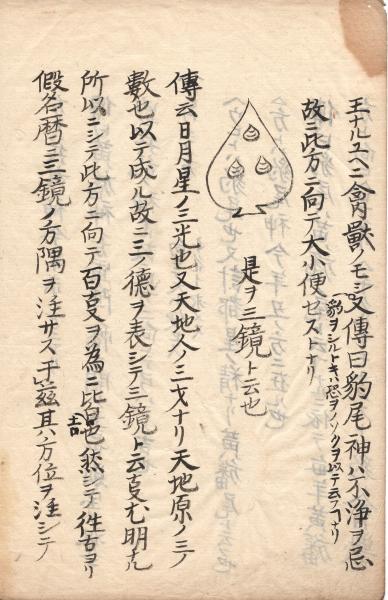 王ナルユヘニ禽獣ノモシ又傳曰豹尾神ハ不浄ヲ忌
豹ヲシルトキハ恐ヲノゾクヲ以テ云フナリ
故ニ此方ニ向テ大小便セストナリ
是ヲ三鏡ト云也
傳云日月星ノ三光也又天地人ノ三才ナリ天地原ノ三ノ
數也以テ成ル故ニ三ノ德ヲ表シテ三鏡ト云
所以ニシテ此方ニ向テ百叓ヲ為ニ皆吉也然シテ往古ヨリ
假名暦ニ三鏡ノ方隅ヲ注サス于茲其方位ヲ注シテ